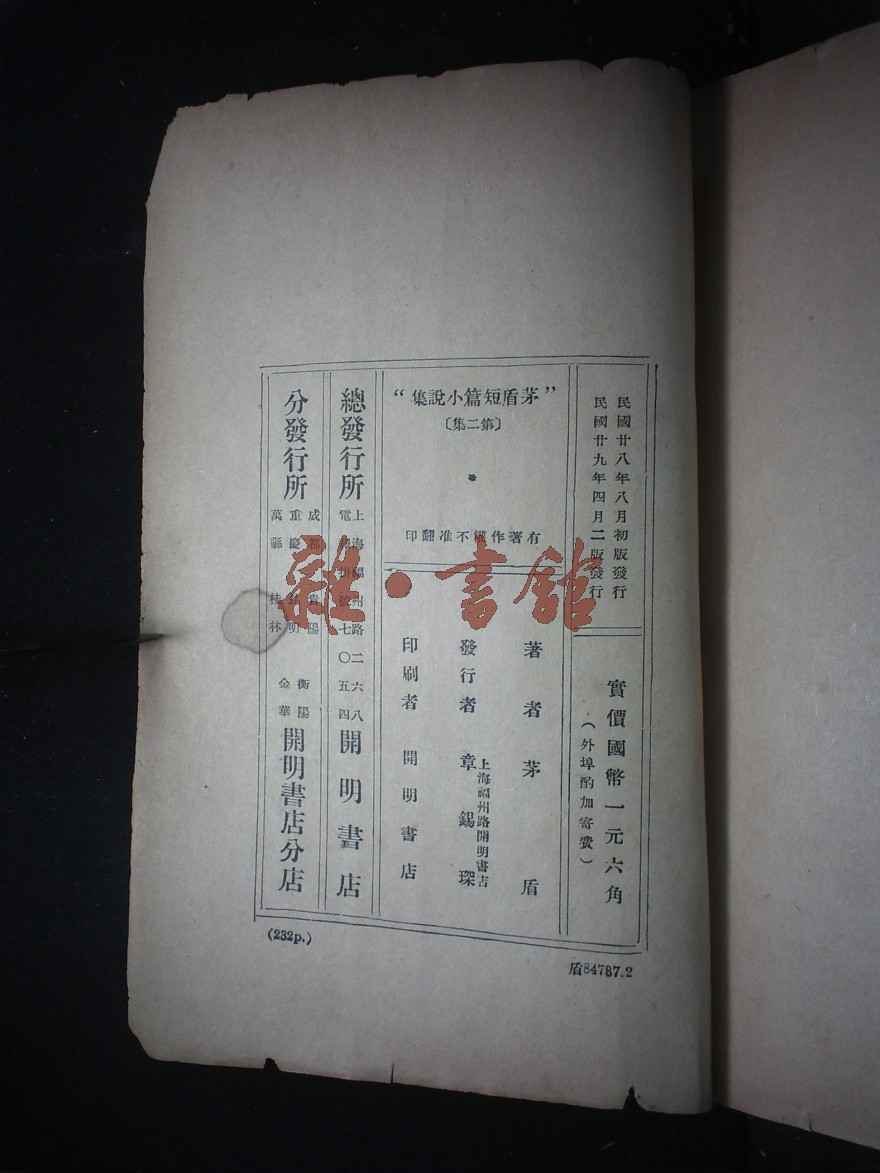 民國廿八年八月初版發行
民國廿九年四月二版發行
實價國幣一元六角
(外埠酌加寄費)
“茅盾短篇小說集”
〔第二集〕
有著作權不准翻印
著者 茅盾
發行者 章錫琛
上海福州路開明書店
印刷者 開明書店
總發行所
上海福州路二六八
電報掛號七〇五四
開明書店
分發行所
成都 貴陽 衡陽
重慶 昆明 金華
萬縣 桂林
開明書店分店
(232p.)
盾84787.2
雜·書館